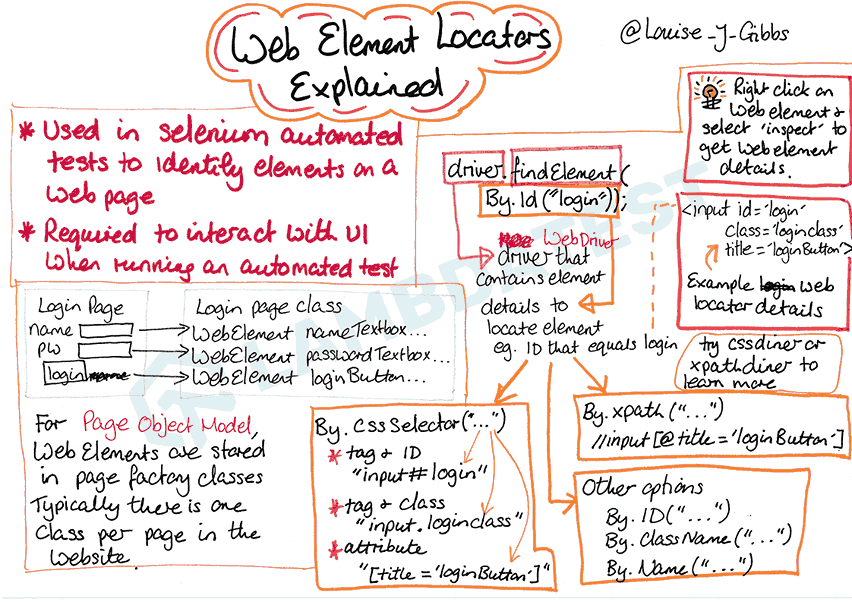 Web Element Locators
Explained
@Louise_J_Gibbs
* Used in selenium automated
tests to identify elements on a
web page
* Required to interact with UI
when running an automated test
Right click on
web element &
select 'inspect' to
get web element
details.
driver.findElement(
By.Id("login"));
WebDriver
driver that
contains element
details to
locate element
eg. ID that equals login
<input id='login'
class='loginclass'
title='loginButton'>
Example web
locator details
try cssdiner or
xpathdiner to
learn more
Login Page
name
pw
login
Login page class
WebElement nameTextbox...
WebElement passwordTextbox...
WebElement loginButton...
For Page Object Model,
Web Elements are stored
in page factory classes
Typically there is one
class per page in the
website.
By.cssSelector("...")
* tag & ID
"input#login"
* tag & class
"input.loginclass"
* attribute
"[title='loginButton']"
By.xpath("...")
//input[@title='loginButton']
Other options
By.ID("...")
By.ClassName("...")
By.Name("...")
LAMBDATEST